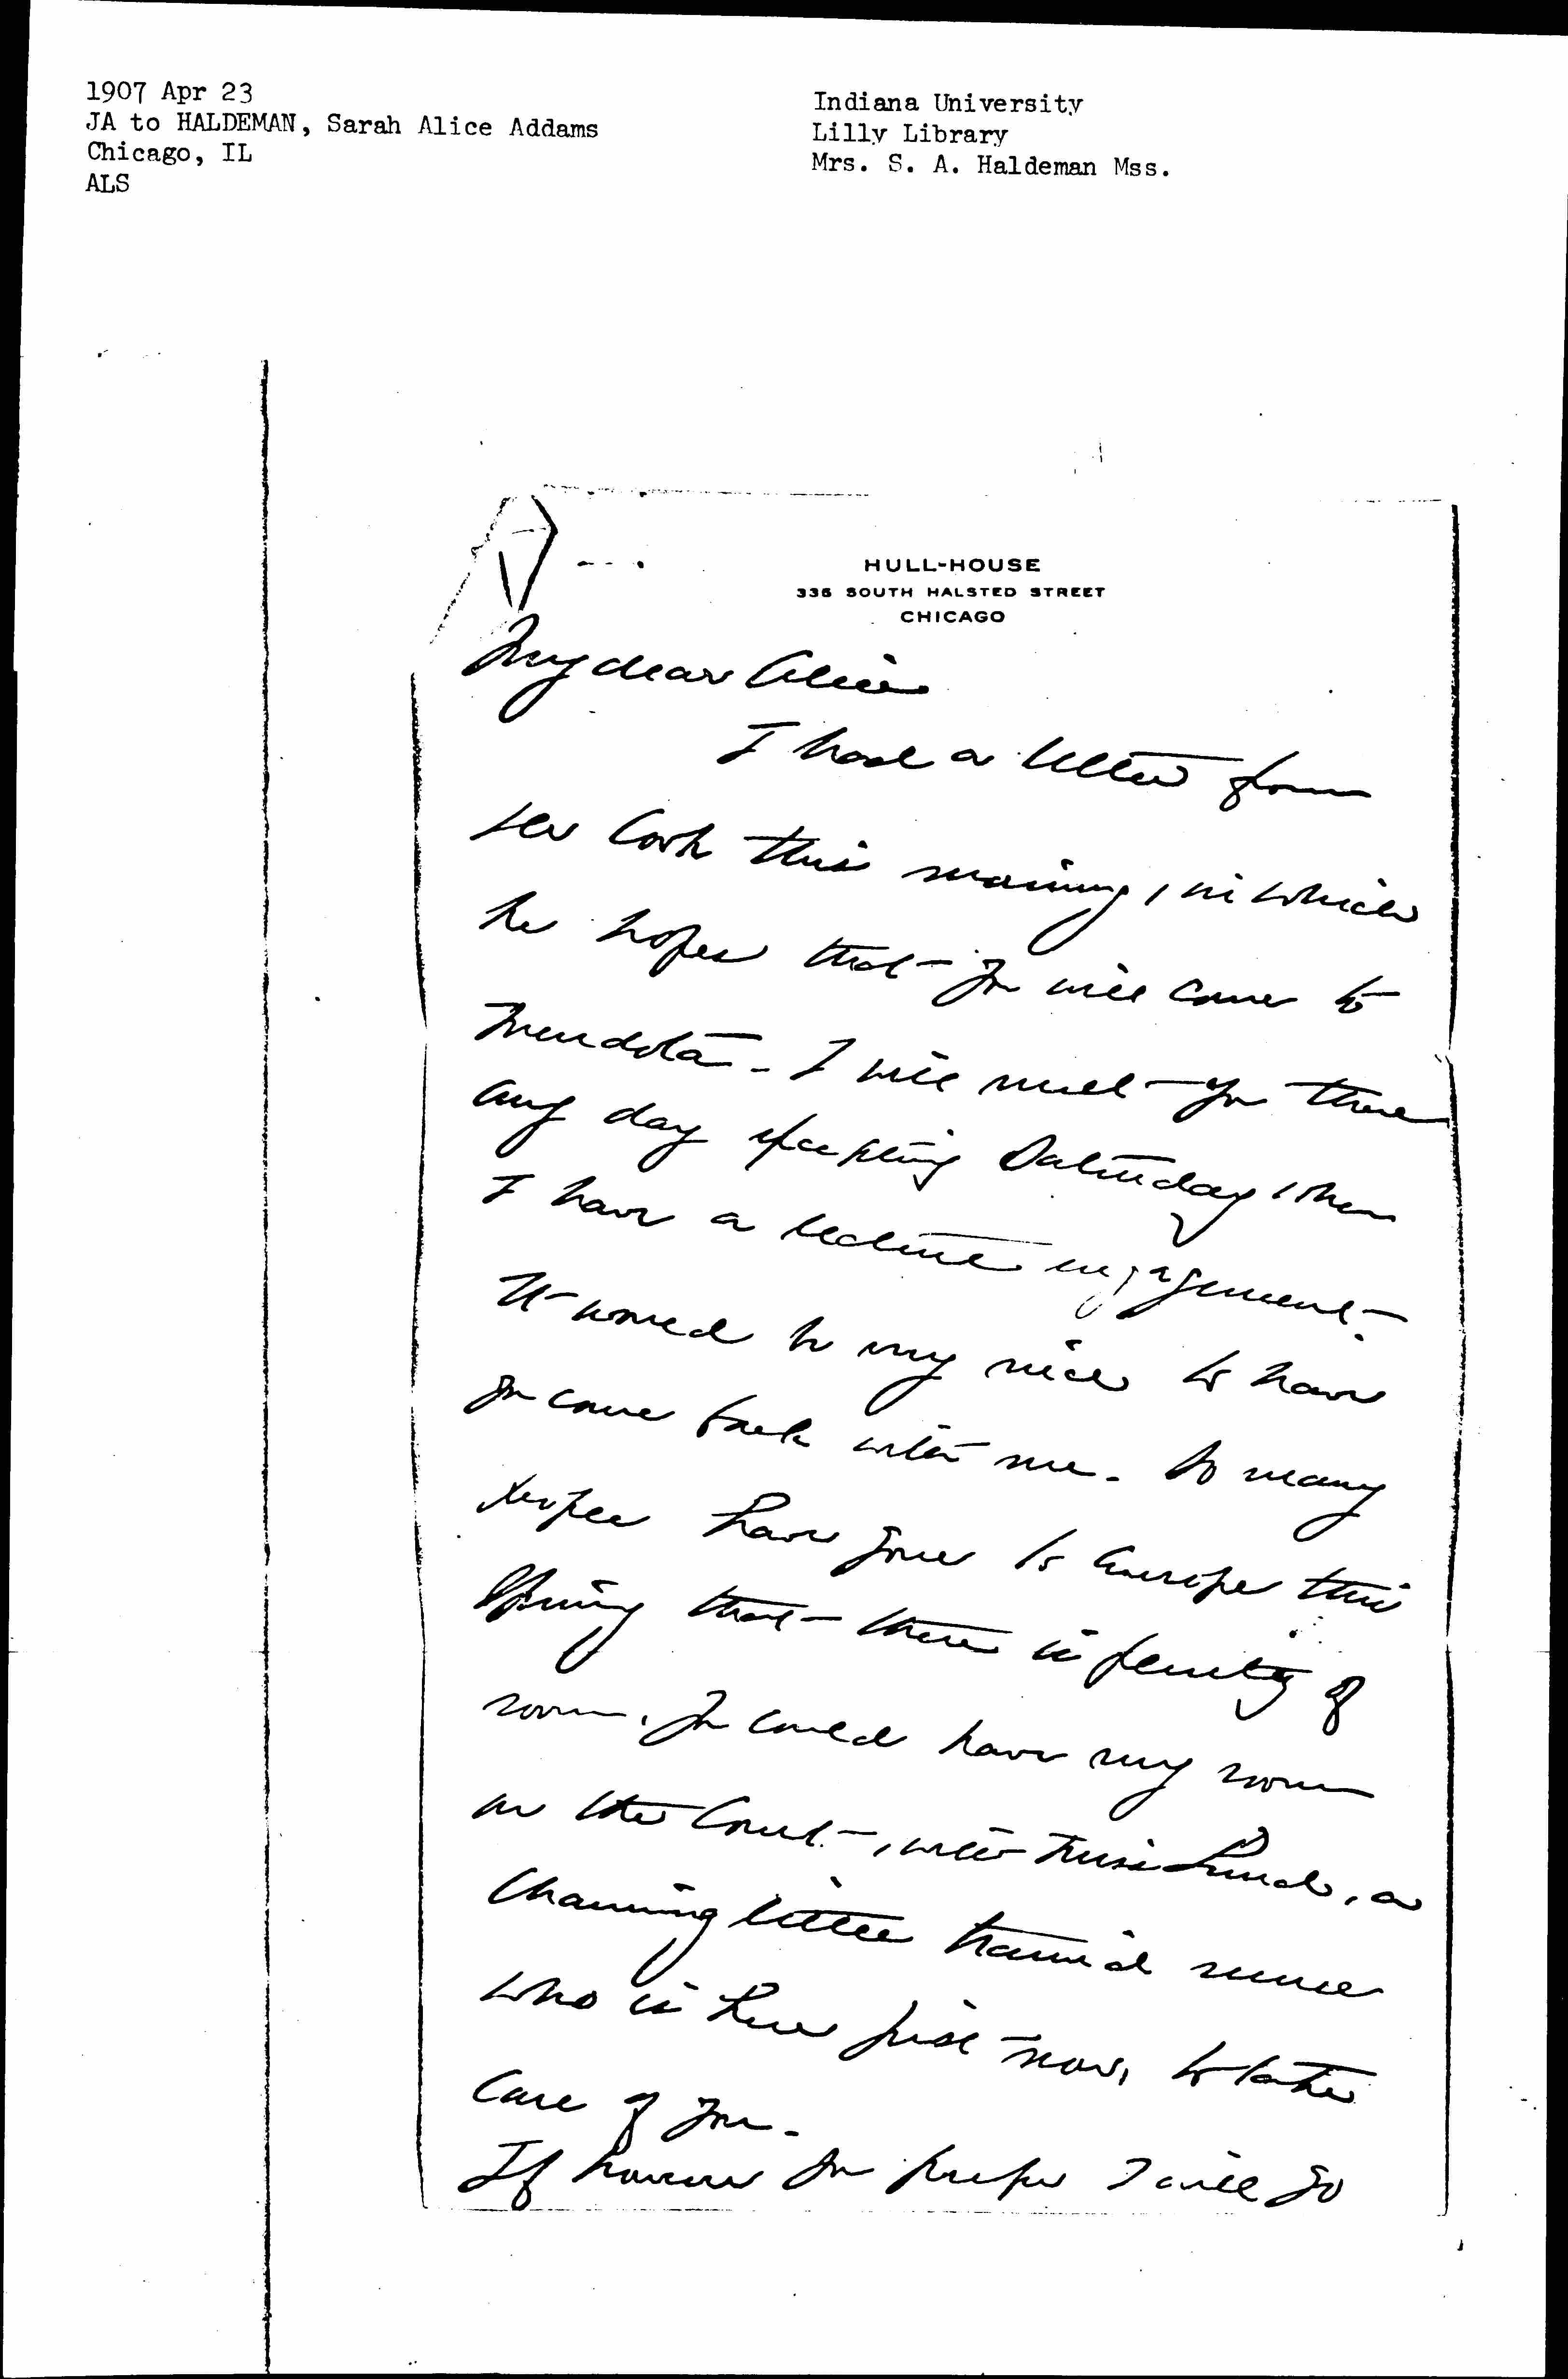 1907 Apr 23
JA to HALDEMAN, Sarah Alice Addams
Chicago, IL
ALS
Indiana University
Lilly Library
Mrs. S. A. Haldeman Mss.
HULL-HOUSE
335 SOUTH HALSTED STREET
CHICAGO
My dear Alice
I had a letter from
this morning, in which
he hopes that you will come to
Mendota - I will meet you there
any day excepting Saturday when
I have a lecture engagement.
It would be very nice to have
you come back with me. So many
people have gone to Europe this
Spring that there is plenty of
room. You could have my room
on the Court, with Miss, a
charming little trained nurse
who is here just now, to take
care of you.
If however you prefer I will go